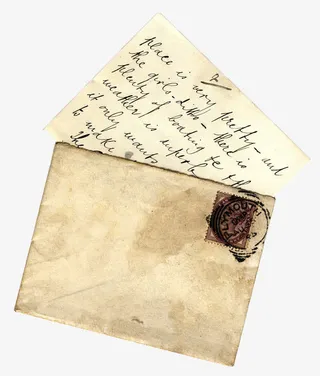 2
place is very pretty — and
the girls ditto — there is
plenty of boating &c the
weather is superb
it only wants
to make
The
MOUTH